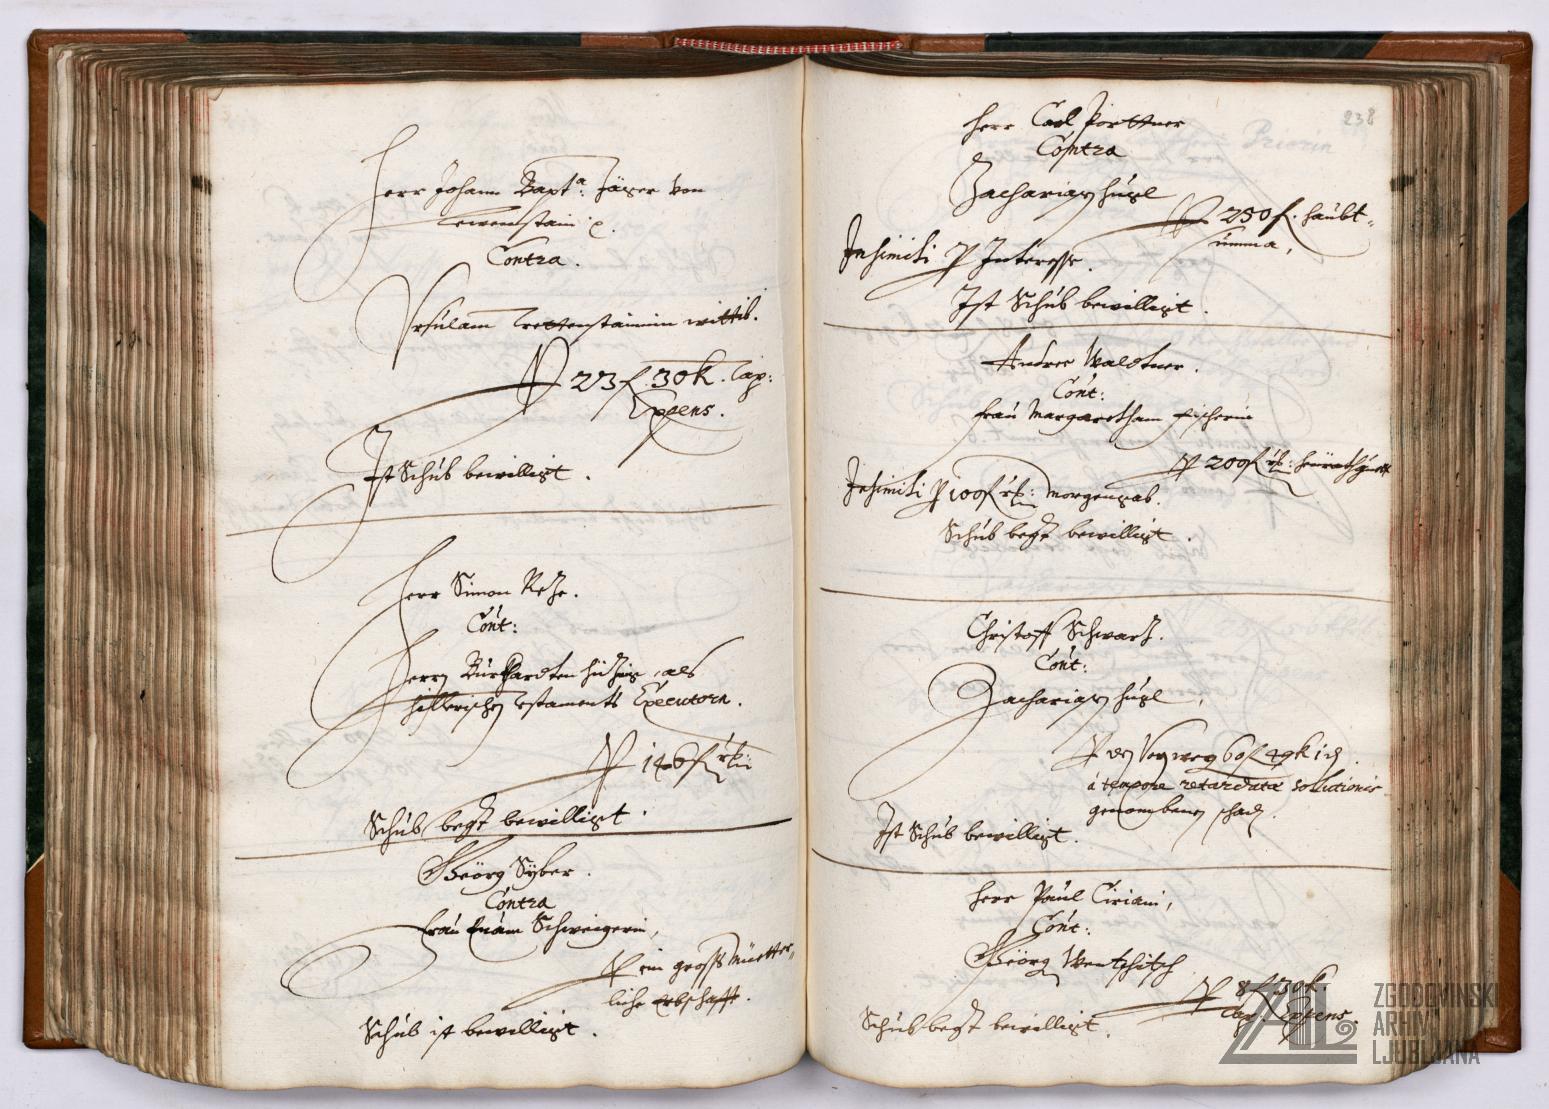 Herr Johann Bapt.ª Jäger von
Lewenstain
Contra.
Ursulam wittib.
p 23 f. 30 k. Cap:
Expens.
Ist Schub bewilligt.
Herr Simon
Cont:
Herrn Burkhardten als
Testaments Executorn.
p 146 f
Schub begt bewilligt.
Geörg Syber.
Contra
Frau Evam Schweigerin,
p ein gross Müetter-
liche Erbschafft.
Schub ist bewilligt.
238
Herr Carl Porttner
Contra
Zachariaß Hügl
p 250 f. Haubt-
summa,
Insimili p Interesse.
Ist Schub bewilligt.
Andree Waldtner.
Cont:
Frau Margaretham Fischerin
p 200 f Heürathguett
Insimili p 100 f Morgengab.
Schub begt bewilligt.
Christoff Schwarz.
Cont:
Zachariaß Hügl,
p 60 f 49 k 1
à tempore retardatæ solutionis
genombenen schad.
Ist Schub bewilligt.
Herr Paul Ciriani,
Cont:
Geörg Wentschitsch
p 8 f 30 k
Cap. Expens.
Schub begt bewilligt.
ZAL
ZGODOVINSKI
ARHIV
LJUBLJANA